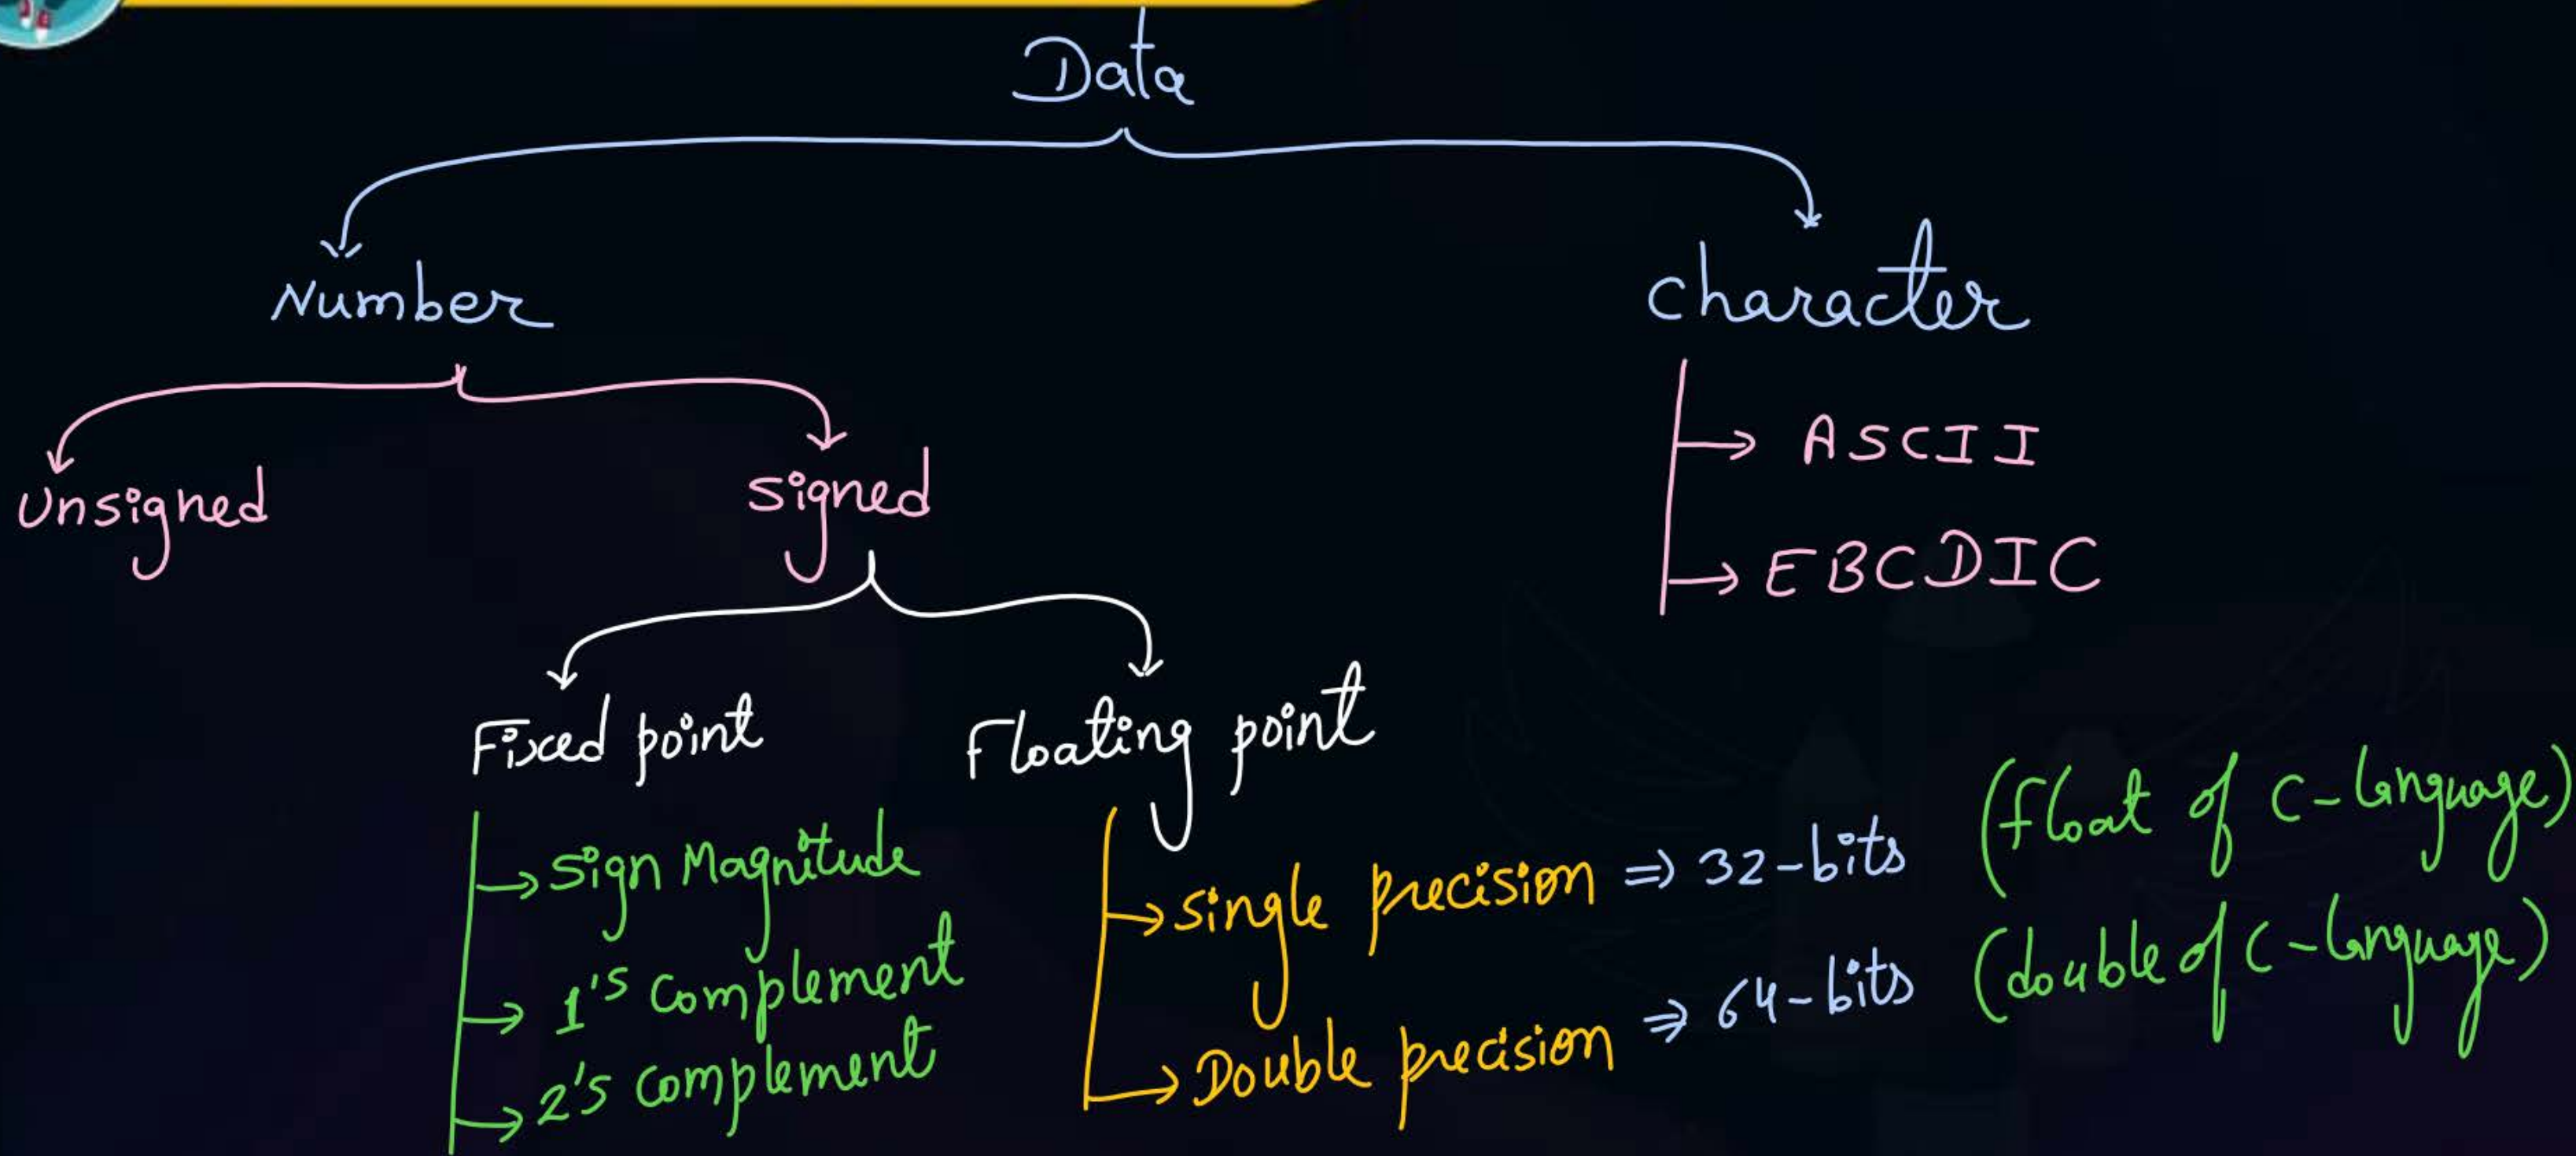 Data
Number
character
Unsigned
signed
ASCII
EBCDIC
Fixed point
Floating point
Sign Magnitude
1's complement
2's complement
single precision ⇒ 32-bits (float of C-language)
Double precision ⇒ 64-bits (double of C-language)